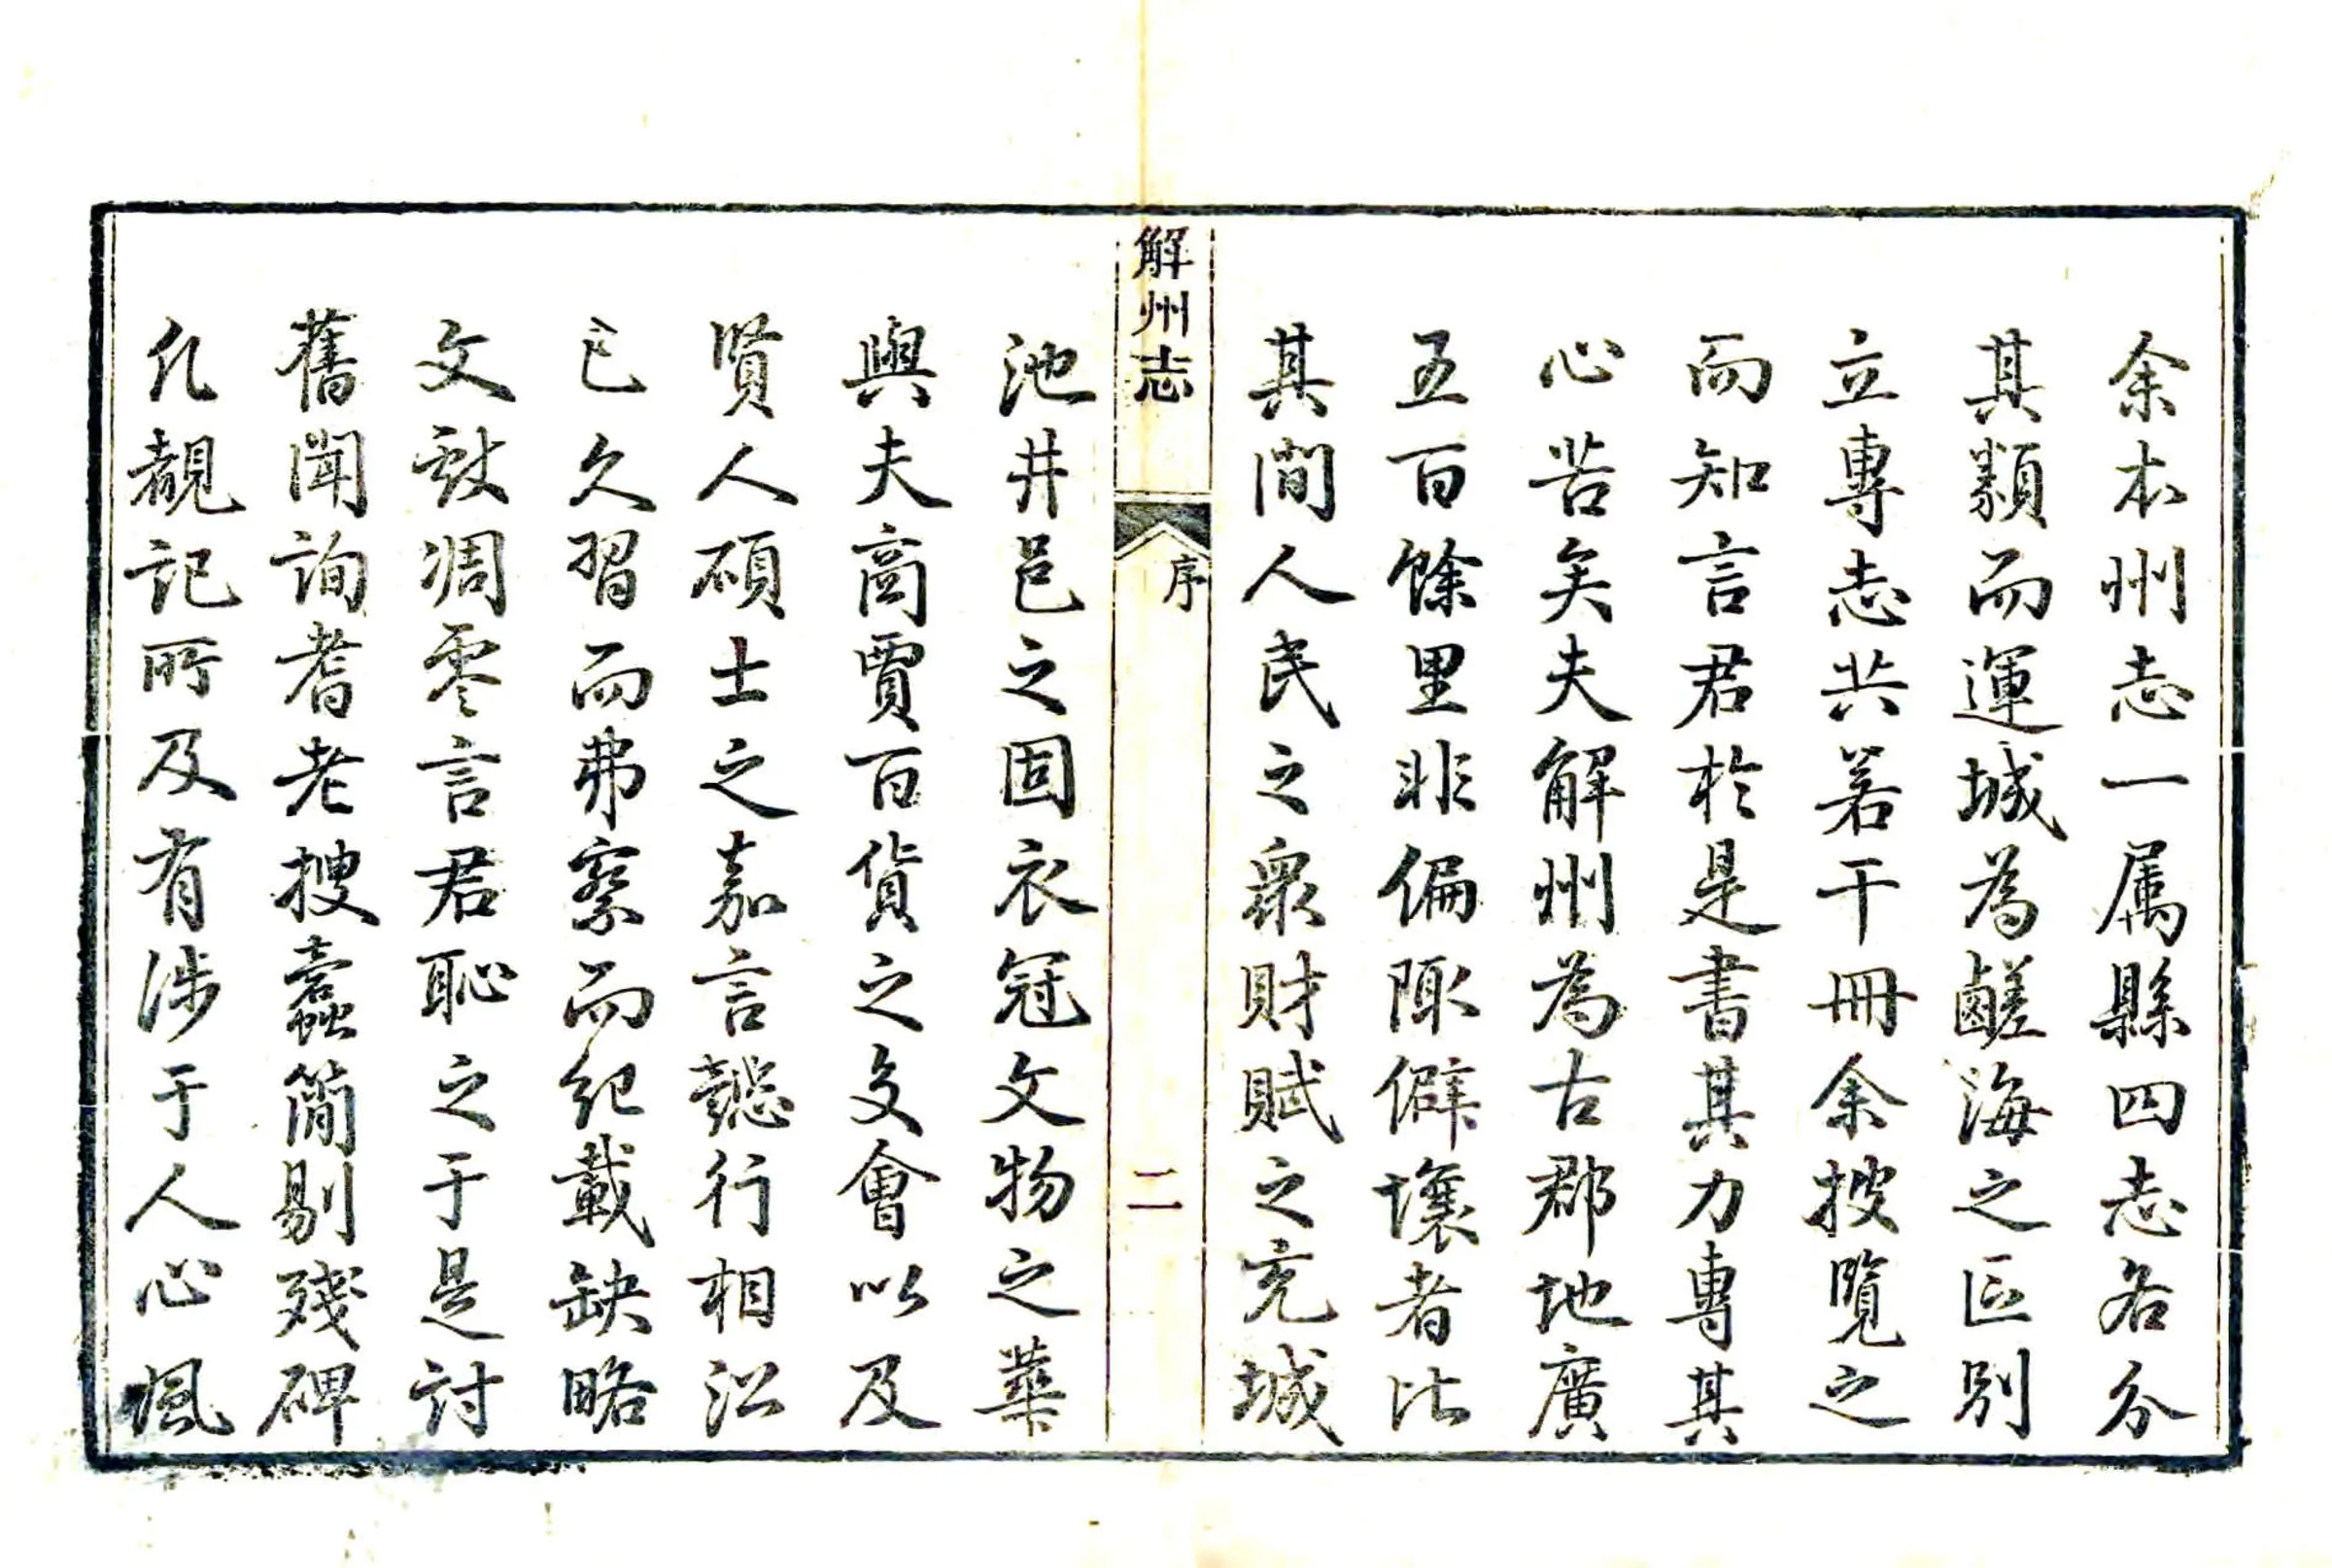 余本州志一属縣四志各分
其類而運城為鹺海之區別
立專志共若干冊余披覽之
而知言君於是書其力專其
心苦矣夫解州為古郡地廣
五百餘里非偏陬僻壤者比
其間人民之衆財賦之充城
解州志 序 二
池井邑之固衣冠文物之華
與夫商賈百貨之交會以及
賢人碩士之嘉言懿行相沿
已久習而弗察而紀載缺略
文獻凋零言君恥之于是討
舊聞詢耆老搜蠹簡剔殘碑
凡覩記所及有涉于人心風